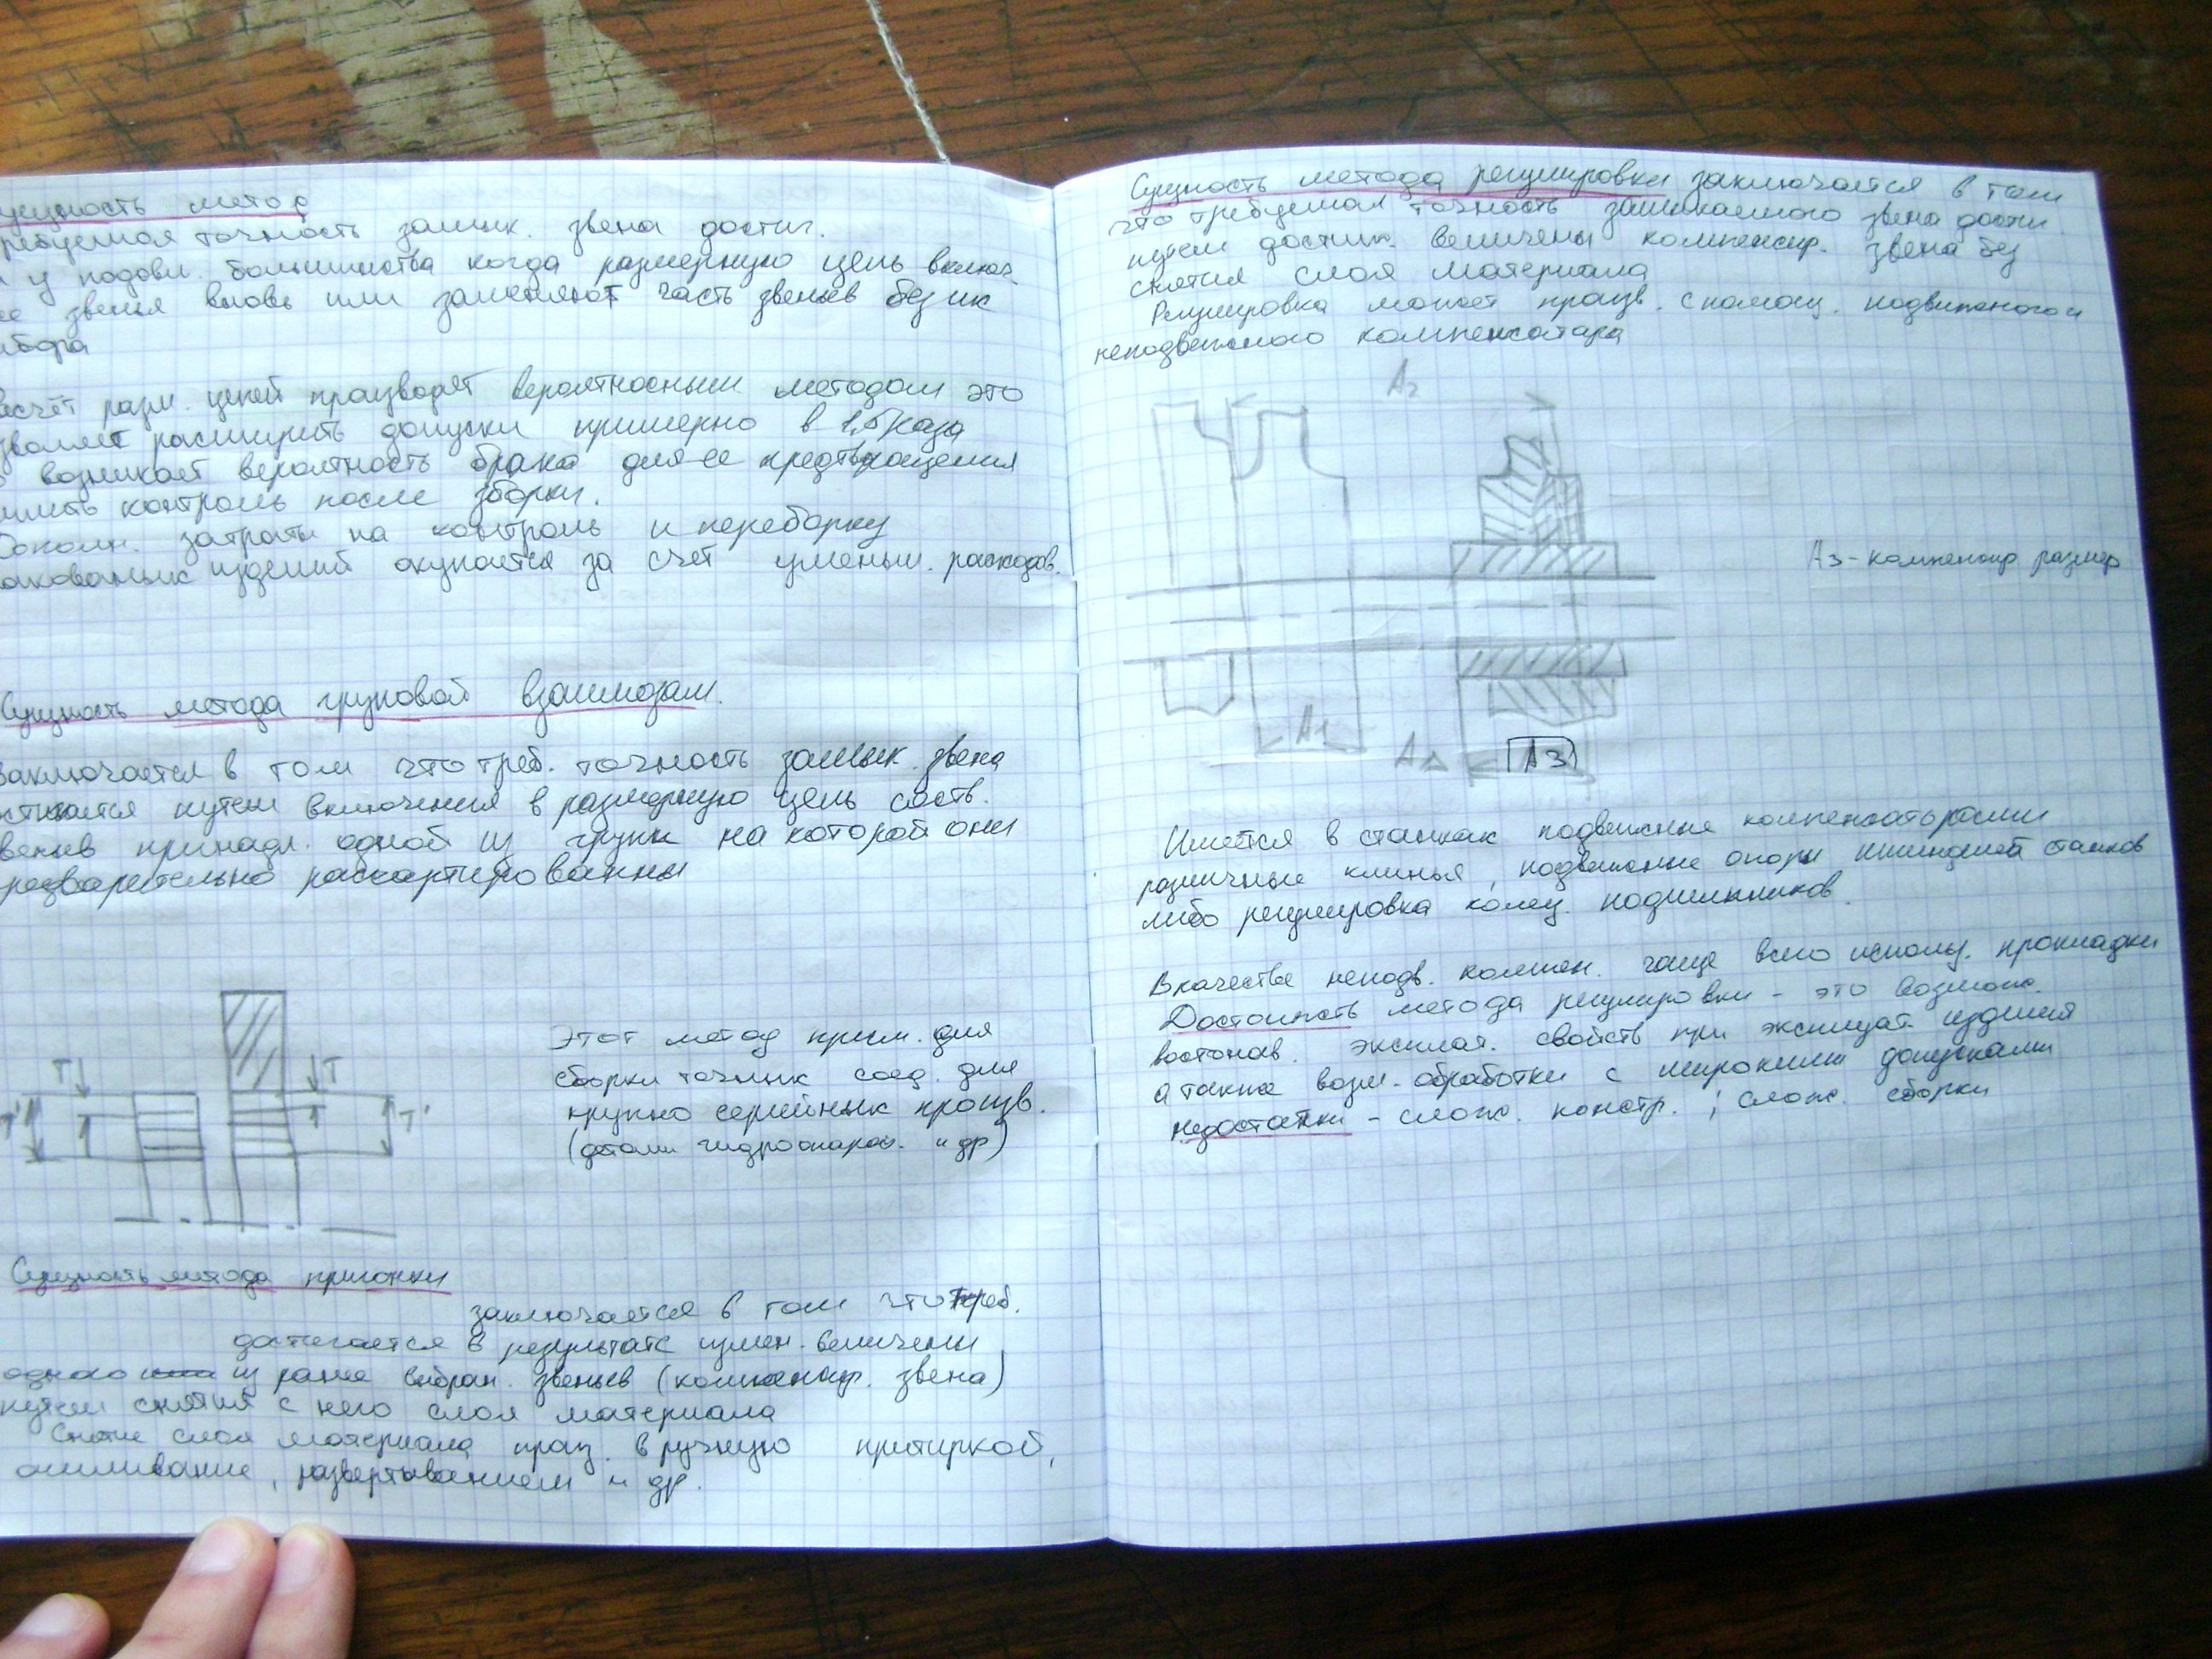 сущность метод
требуемая точность замык. звена достиг.
у подавл. большинства когда размерную цепь включ.
звенья вновь или заменяют часть звеньев без их
Расчёт разм. цепей производят вероятносным методом это
расширить допуски примерно в 1,5 раза
возникает вероятность брака для ее предтврощения
контроль после зборки.
Дополн. затраты на контроль и переборку
изделий окупается за счет уменьш. расходов.
Сущность метода груповой взаимозам.
заключается в том что треб. точность замык. звена
путем включения в размерную цепь сост.
звеньев принадл. одной из групп на которой они
расcортированны
T
T
T'
T'
Этот метод прим. для
сборки точных соед. для
крупно серийных произв.
(детали гидроаппар. и др)
Сущность метода пригонки
заключается в том что треб.
достигается в результате измен. величены
одного из ранее выбран. звеньев (компенсир. звена)
путем снятия с него слоя материала
Снятие слоя материала произ. в ручную притиркой,
опиливание, развертыванием и др.
Сущность метода регулировки заключается в том
что требуемая точность замыкаемого звена дости
путем достиж. величены компенсир. звена без
снятия слоя материала
Регулировка может произв. с помощ. подвижного и
неподвижного компенсатора
A2
A3 - компенсир размер
A1
AΔ
A3
Имеется в станках подвижные компенсаторами
различные клинья, подвижные опоры шпинделей станков
либо регулировка колец. подшипников.
В качестве неподв. компен. чаще всего использ. прокладки
Достоинсть метода регулировки - это возмож.
востонав. эксплат. свойств при эксплуат. изделия
а также возм. обработки с широкими допусками
недостатки - слож. констр.; слож. сборки